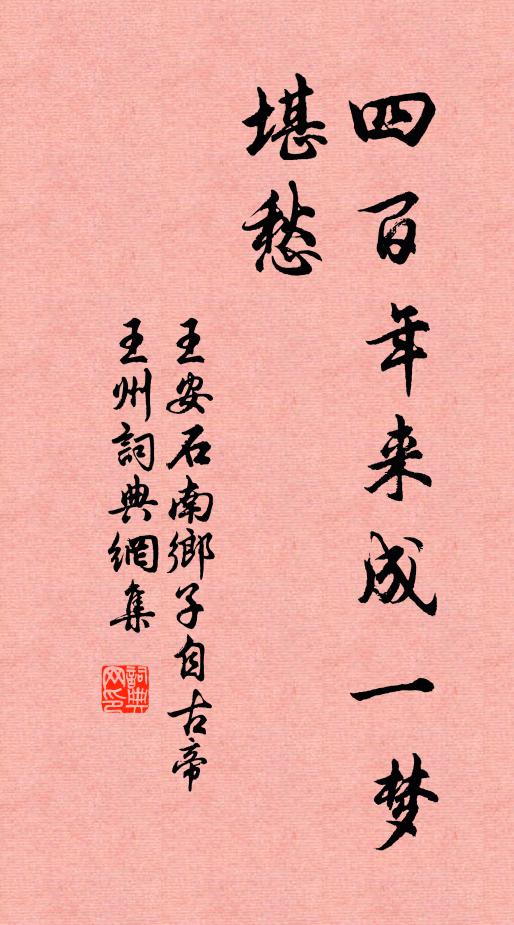 四百年来成一梦
堪愁
王安石南鄉子自古帝
王州詞典網集
詞典
网印